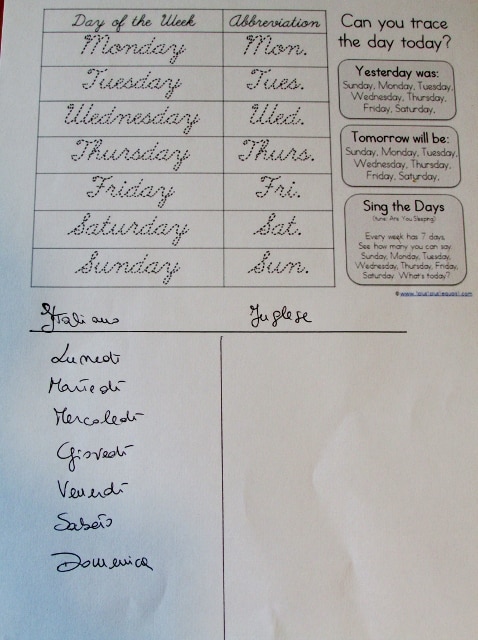 Day of the Week Abbreviation
Monday Mon.
Tuesday Tues.
Wednesday Wed.
Thursday Thurs.
Friday Fri.
Saturday Sat.
Sunday Sun.
Can you trace
the day today?
Yesterday was:
Sunday, Monday, Tuesday,
Wednesday, Thursday,
Friday, Saturday,
Tomorrow will be:
Sunday, Monday, Tuesday,
Wednesday, Thursday,
Friday, Saturday,
Sing the Days
(tune: Are You Sleeping)
Every week has 7 days.
See how many you can say.
Sunday, Monday, Tuesday,
Wednesday, Thursday, Friday,
Saturday. What's today?
Italiano Inglese
Lunedì
Martedì
Mercoledì
Giovedì
Venerdì
Sabato
Domenica